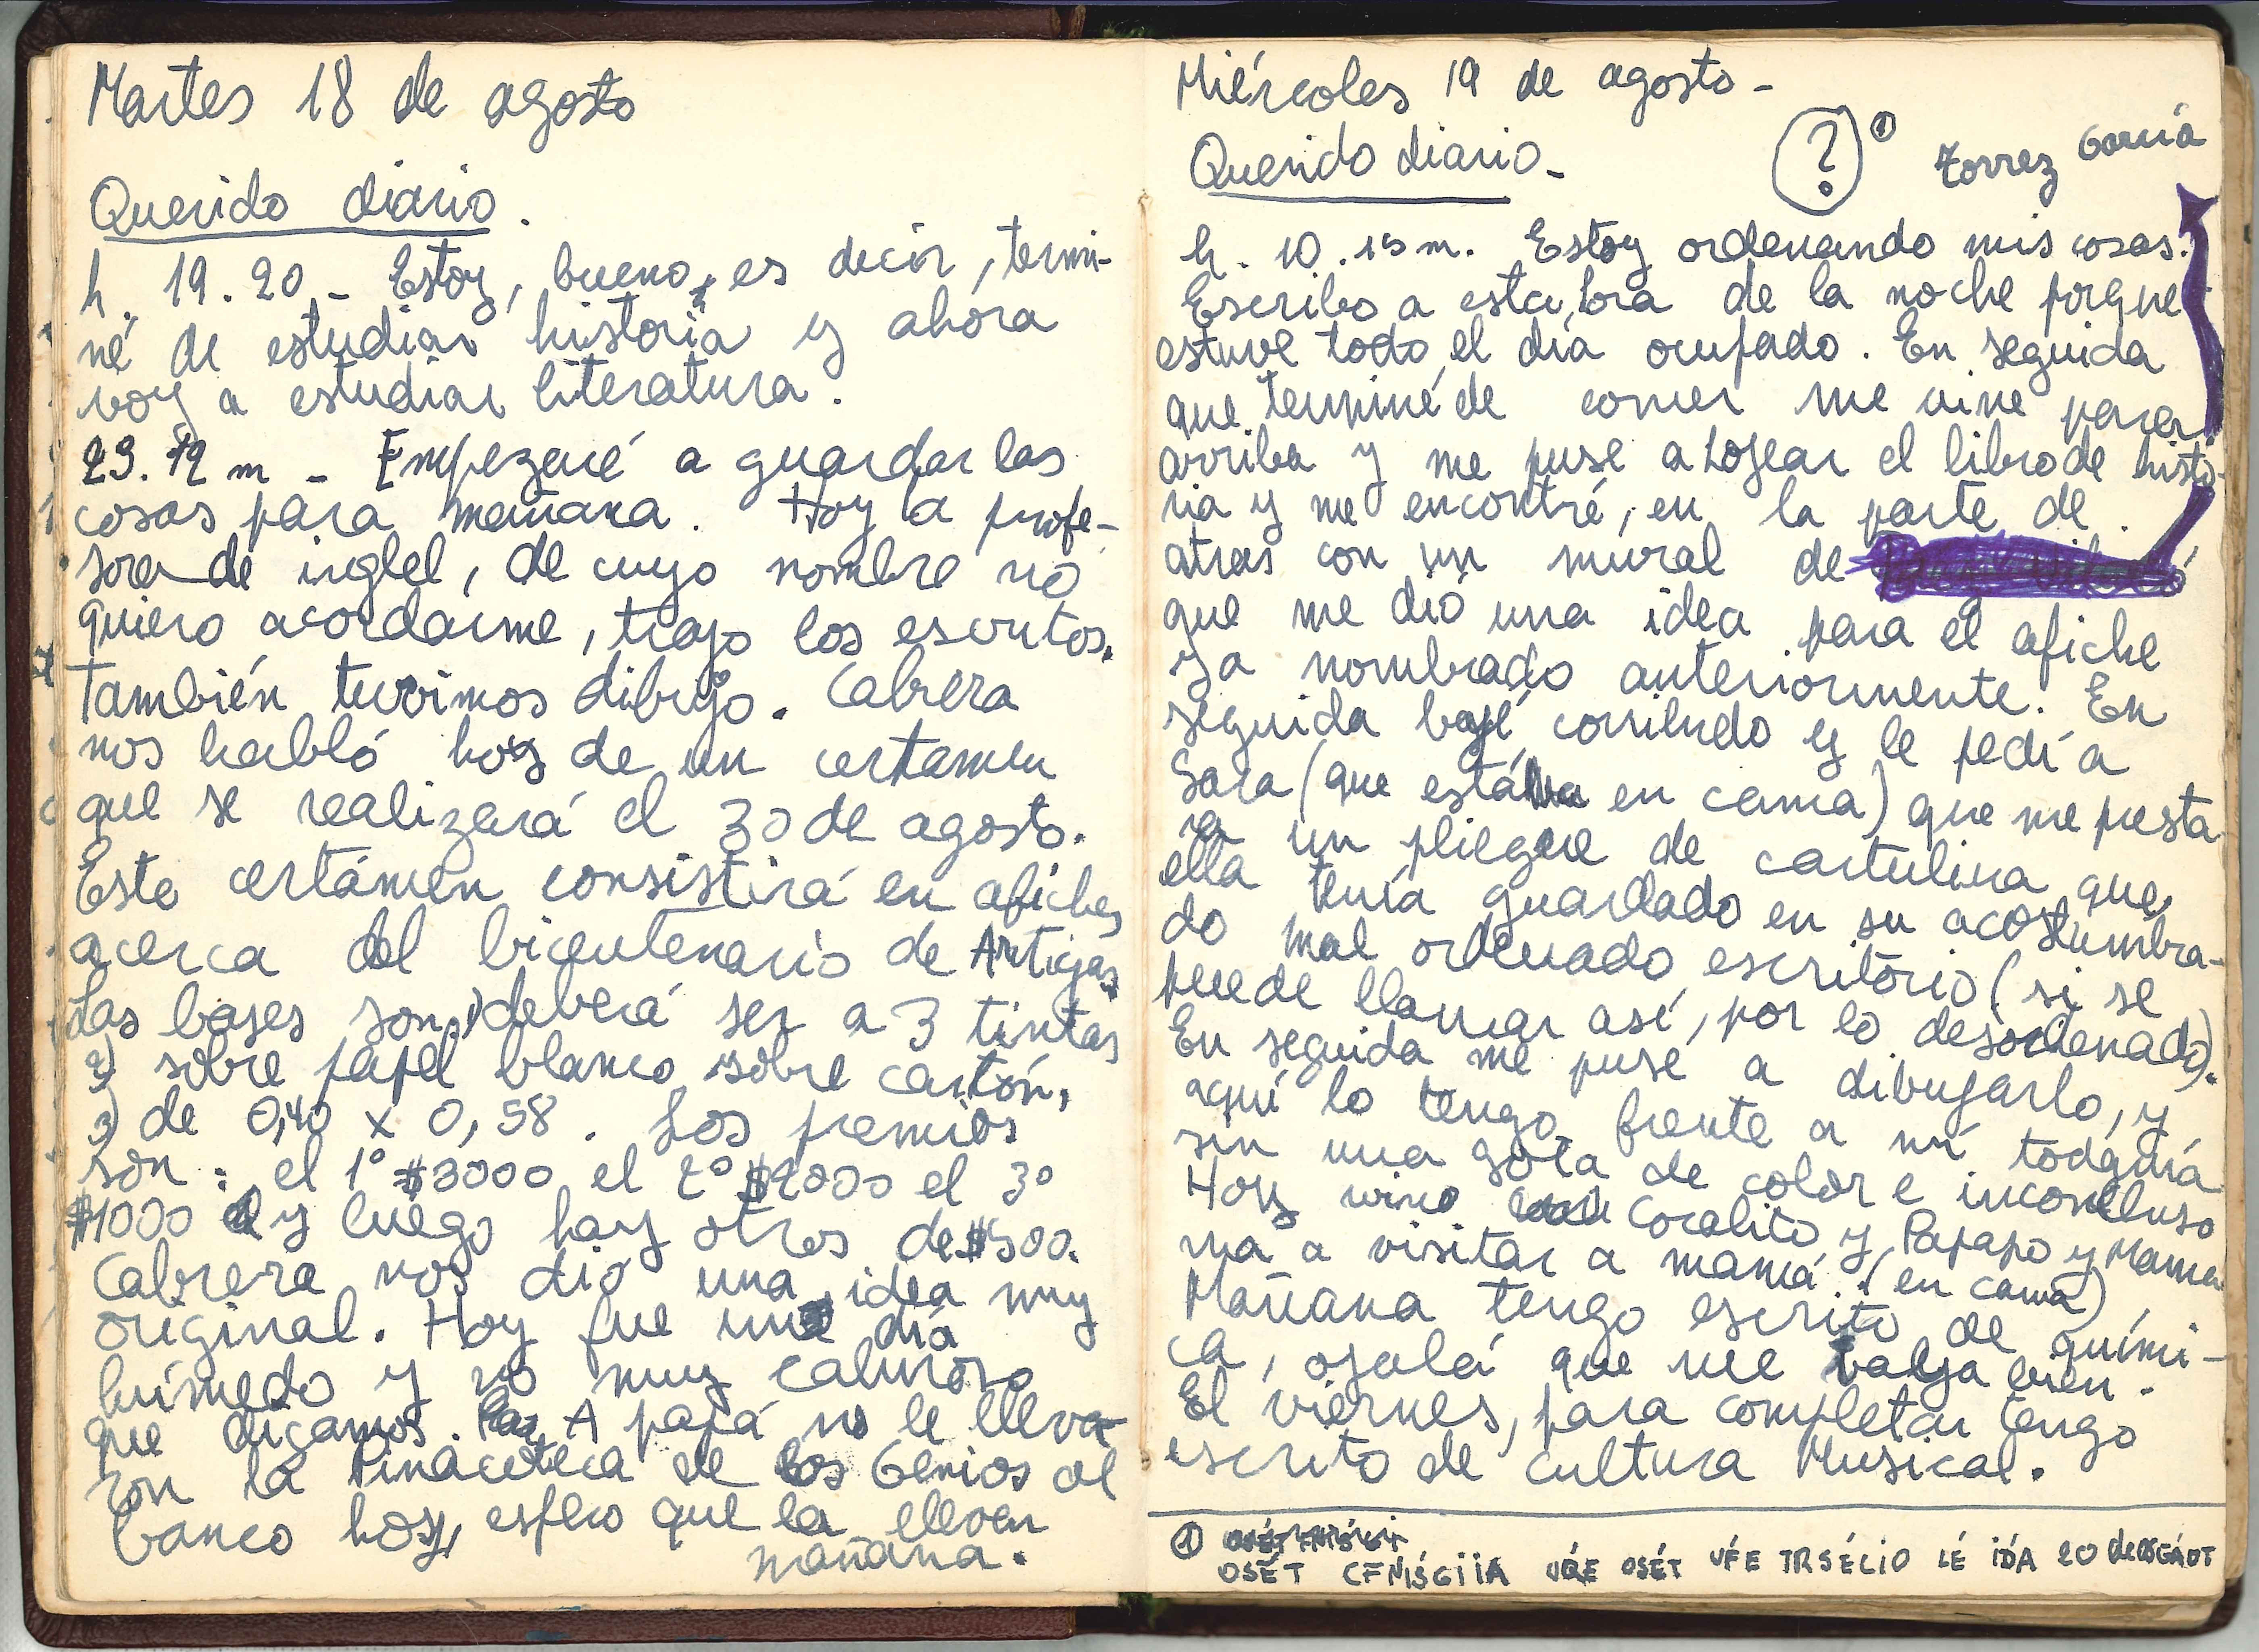 Martes 18 de agosto
Querido diario.
h. 19.20 - Estoy, bueno, es decir, termi-
né de estudiar historia y ahora
voy a estudiar literatura.
23.12 m - Empezaré a guardar las
cosas para mañana. Hoy la profe-
sora de inglel, de cuyo nombre no
quiero acordarme, trajo los escritos.
También tuvimos dibujo. Cabrera
nos habló hoy de un certamen
que se realizará el 30 de agosto.
Este certámen consistirá en afiches
acerca del bicentenario de Artigas.
Las bases son: 1) deberá ser a 3 tintas
2) sobre papel blanco sobre cartón,
3) de 0,40 x 0,58. Los premios
son: el 1° $3000 el 2° $2000 el 3°
$1000 y luego hay otros de $500.
Cabrera nos dió una idea muy
original. Hoy fue un día
húmedo y no muy caluroso
que digamos. A papá no le lleva-
ron la Pinacoteca de los Genios al
banco hoy, espero que la lleven
mañana.
Miércoles 19 de agosto -
Querido diario - ? ① Torrez García
h. 10.15 m. Estoy ordenando mis cosas.
Escribo a esta hora de la noche porque
estuve todo el día ocupado. En seguida
que terminé de comer me vine para
arriba y me puse a hojear el libro de histo-
ria y me encontré, en la parte de
atras con un mural de
que me dió una idea para el afiche
ya nombrado anteriormente. En
seguida bajé corriendo y le pedí a
Sara (que estába en cama) que me presta
ra un pliegue de cartulina que
ella tenía guardado en su acostumbra-
do mal ordenado escritorio (si se
puede llamar así, por lo desordenado).
En seguida me puse a dibujarlo, y
aquí lo tengo frente a mí todavía
sin una gota de color e inconcluso
Hoy vino Coralito y Papapo y Mama
ma a visitar a mamá. (en cama)
Mañana tengo escrito de quími-
ca, ojalá que me valla bien.
El viernes, para completar tengo
escrito de cultura Musical.
① OSÉT CFNIŚGIIA VFE OSÉT VFE TRSÉCIO LÉ IDÁ 20 de OSGÁOT